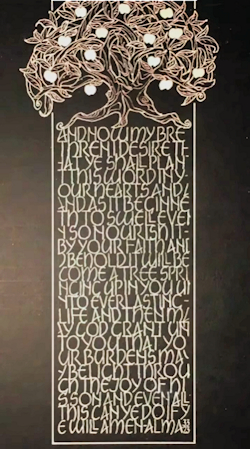 AND NOW MY BRE
THREN I DESIRE T
HAT YE SHALL PLAN
T THIS WORD IN Y
OUR HEARTS AND
AND AS IT BEGINNE
TH TO SWELL EVE
N SO NOURISH IT
BY YOUR FAITH AN
D BEHOLD IT WILL BE
COME A TREE SPR
INGING UP IN YOU U
NTO EVERLASTING
LIFE AND THEN M
AY GOD GRANT UN
TO YOU THAT YO
UR BURDENS MA
Y BE LIGHT THROU
GH THE JOY OF HI
S SON AND EVEN ALL
THIS CAN YE DO IF Y
E WILL AMEN ALMA 33 23